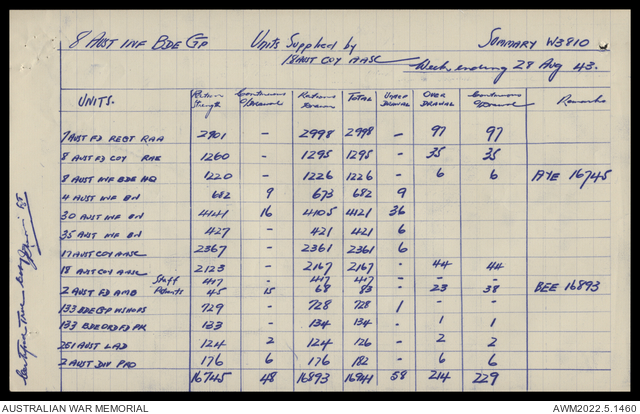 8 AUST INF BDE GP UNITS SUPPLIED by SUMMARY W3810
18 AUST COY AASC Week ending 28 Aug 43.
UNITS. Return Strength Continuous O/Drawal Rations Drawn TOTAL UNDER DRAWAL OVER DRAWAL Continuous O/Drawal Remarks
7 AUST FD REGT RAA 2901 - 2998 2998 - 97 97
8 AUST FD COY RAE 1260 - 1295 1295 - 35 35
8 AUST INF BDE HQ 1220 - 1226 1226 - 6 6 AYE 16745
4 AUST INF BN 682 9 673 682 9
30 AUST INF BN 4141 16 4105 4121 36
35 AUST INF BN 427 - 421 421 6
17 AUST COY AASC 2367 - 2361 2361 6
18 AUST COY AASC 2123 - 2167 2167 - 44 44
Staff 417 - 417 417 -
2 AUST FD AMB Patients 45 15 68 83 - 23 38 BEE 16893
133 BDE GP W/SHOPS 729 - 728 728 1 - -
133 BDE ORD FD PK 133 - 134 134 - 1 1
251 AUST LAD 124 2 124 126 - 2 2
2 AUST DIV PRO 176 6 176 182 - 6 6
16745 48 16893 16941 58 214 229
Certified True Copy
AUSTRALIAN WAR MEMORIAL AWM2022.5.1460